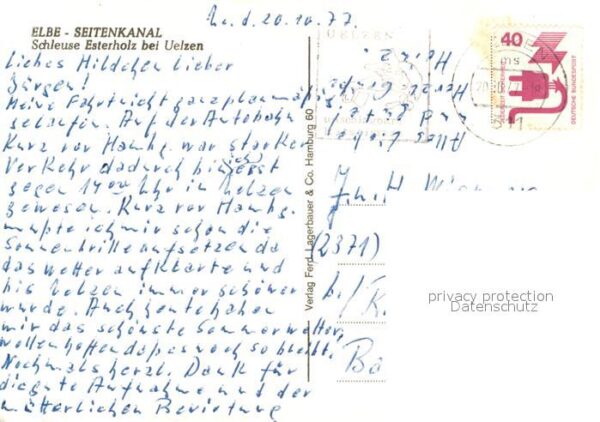 ELBE - SEITENKANAL
Schleuse Esterholz bei Uelzen
d. 20.10.77
Liebes Hildchen lieber
Jürgen!
Meine Fahrt nicht ganz planmäßig
gelaufen. Auf der Autobahn
Kurz vor Hambg. war starker
Verkehr dadurch bin ich erst
gegen 14 00 Uhr in Uelzen
gewesen. Kurz vor Hambg.
mußte ich mir schon die
Sonnenbrille aufsetzen da
das Wetter aufklarte und
bis Uelzen immer schöner
wurde. Auch heute haben
wir das schönste Sommerwetter,
wollen hoffen daß es noch so bleibt.
Nochmals herzl. Dank für
die gute Aufnahme und der
mütterlichen Bewirtung
Alles Liebe
und
Heinz
UELZEN
40
DEUTSCHE BUNDESPOST
311
Verlag Ferd. Lagerbauer & Co. Hamburg 60
(2371)
b./
privacy protection
Datenschutz